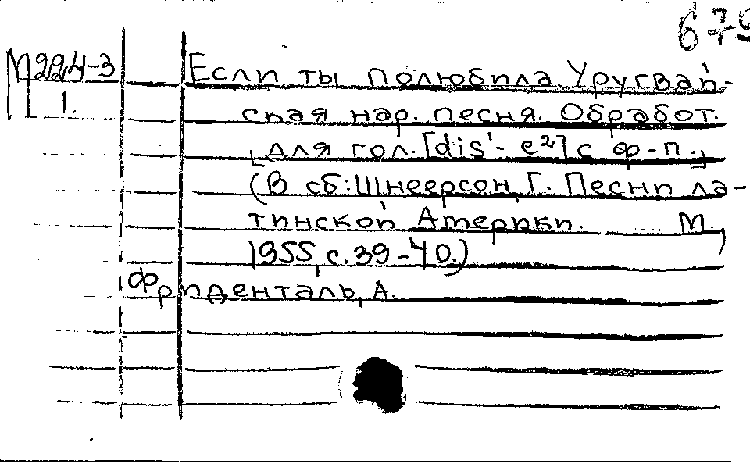 М224-3
1.
Если ты полюбила. Уругвай-
ская нар. песня. Обработ.
[для гол. [dis¹- e²] с ф-п.]
(В сб: Шнеерсон, Г. Песни ла-
тинской Америки. М,
1955, с. 39-40.)
Фриденталь, А.